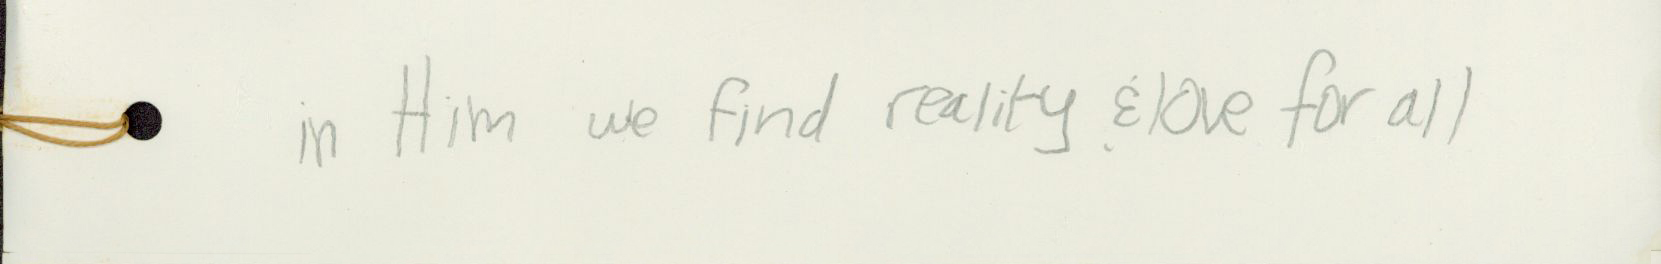 in Him we find reality & love for all